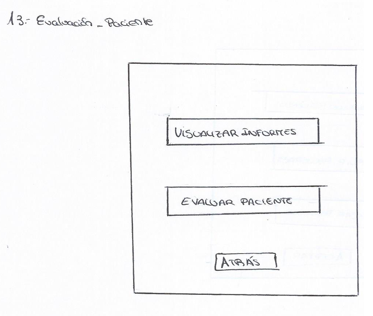 13.- Evaluación_Paciente
VISUALIZAR INFORMES
EVALUAR PACIENTE
ATRÁS